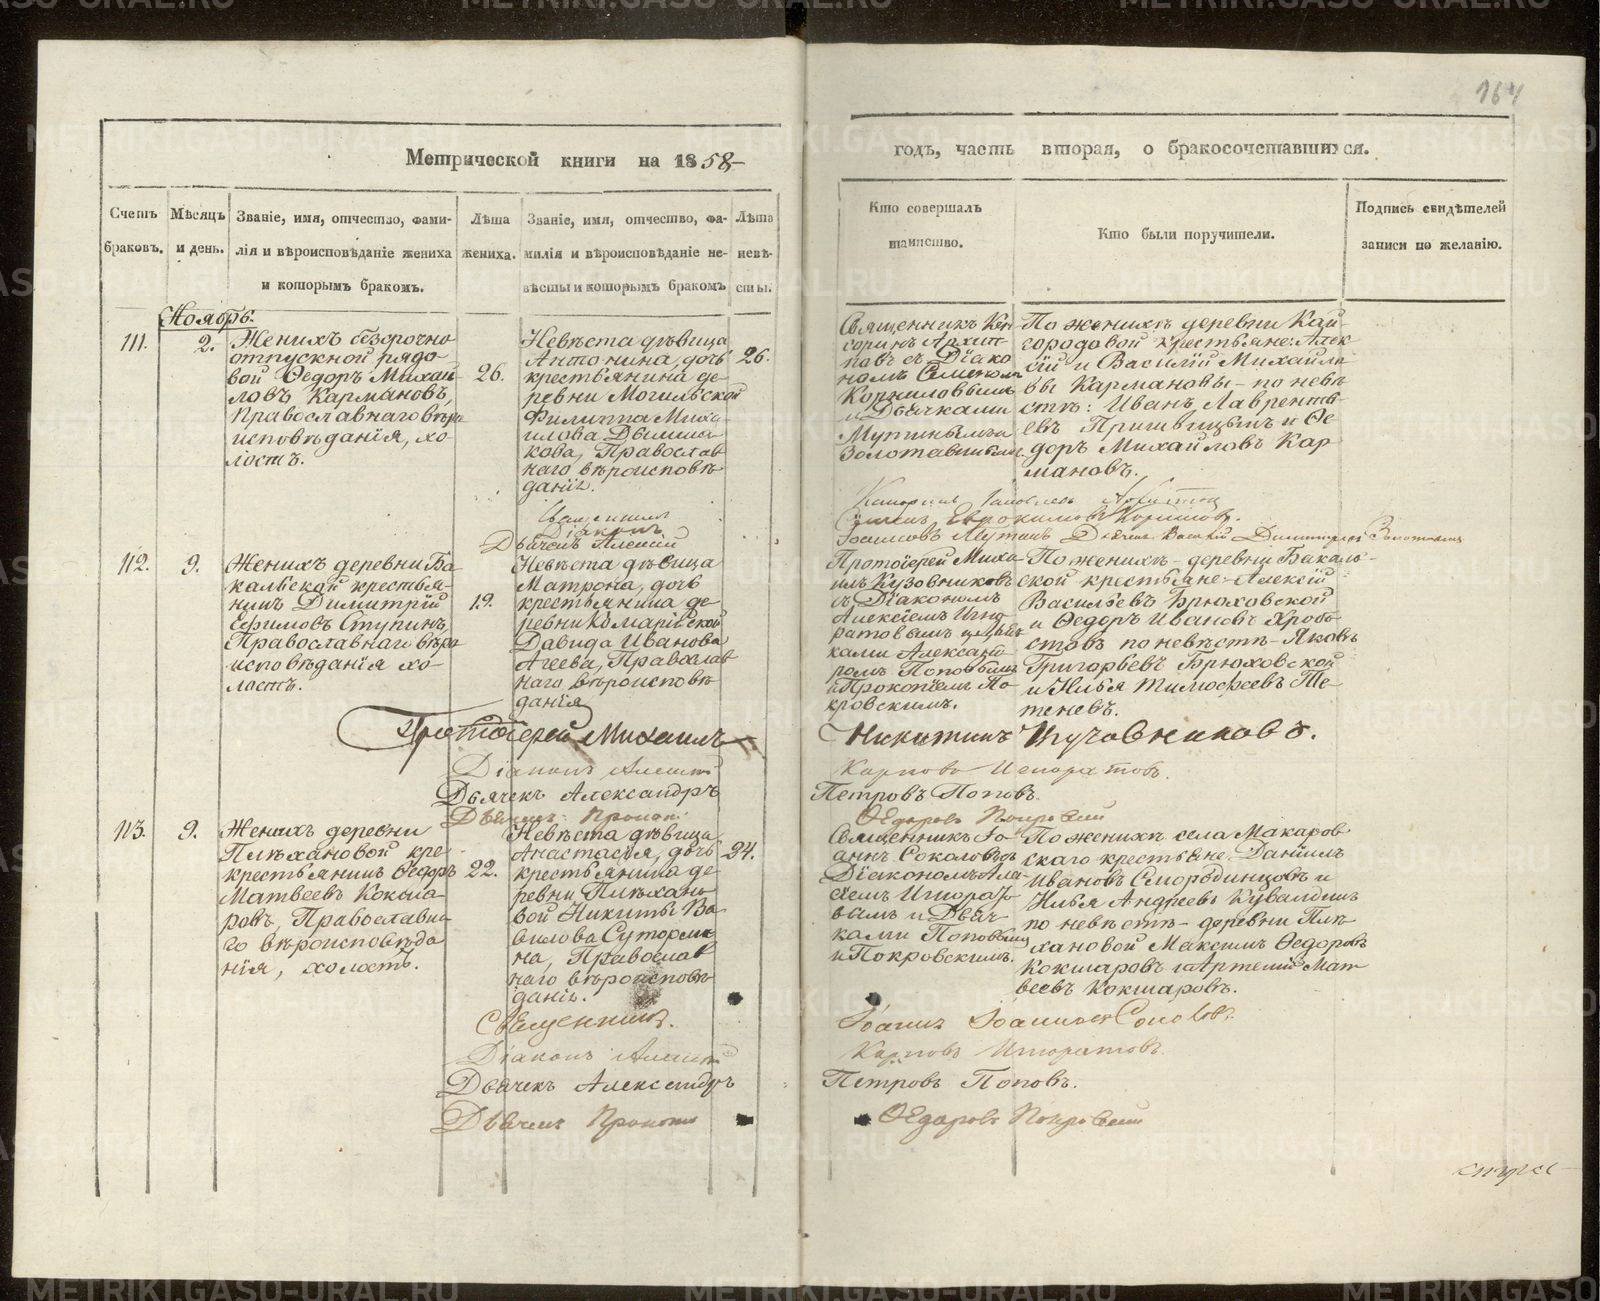 164
Метрической книги на 1858
годъ, часть вторая, о бракосочетавшихся.
Счетъ браковъ.
Мѣсяцъ и день.
Званіе, имя, отчество, фами-
лія и вѣроисповѣданіе жениха
и которымъ бракомъ.
Лѣта
жениха.
Званіе, имя, отчество, фа-
милія и вѣроисповѣданіе не-
вѣсты и которымъ бракомъ
Лѣта
невѣ-
сты.
Кто совершалъ
таинство.
Кто были поручители.
Подпись свидѣтелей
записи по желанію.
Ноябрь.
111.
2.
Женихъ безсрочно
отпускной рядо-
вой Ѳедоръ Михай-
ловъ Кармановъ,
Православнаго вѣро
исповѣданія, хо-
лостъ.
26.
Невѣста дѣвица
Антонина, дочь
крестьянина де-
ревни Могильской
Филиппа Миха-
илова
Православ
наго вѣроисповѣ
данія.
26.
Священникъ
съ Діако
номъ
Корниловымъ
и Дьячками
По женихѣ деревни Кай-
городовой крестьяне: Алек
сій и Василій Михайло
вы Кармановы - по невѣ
стѣ: Иванъ Лавренть-
евъ и Ѳе-
доръ Михайловъ Кар
мановъ.
Дьячекъ Алексій
112.
9.
Женихъ деревни Ба
кальской крестья-
нинъ Димитрій
Ефимовъ Ступинъ,
Православнаго вѣро
исповѣданія хо-
лостъ.
19.
Невѣста дѣвица
Матрона, дочь
крестьянина де
ревни Комарійской
Давида Иванова
Агеева, Православ
наго вѣроисповѣ
данія
Протоіерей Миха
илъ
съ Діакономъ
Алексіемъ Игно
ратовымъ
ками Александ
ромъ Поповымъ
и Прокопіемъ По
кровскимъ.
По женихѣ - деревни Бакаль-
ской крестьяне - Алексій
Васильевъ Брюховской
и Ѳедоръ Ивановъ
по невѣстѣ - Яковъ
Григорьевъ Брюховской
и Илья Тимофеевъ Те-
теневъ.
Протоіерей Михаилъ
Никитинъ
Діаконъ Алексій
Карповъ
Дьячекъ Александръ
Петровъ Поповъ.
Ѳедоровъ Покровскій
113.
9.
Женихъ деревни
Плѣхановой кре-
крестьянинъ Ѳедоръ
Матвеевъ Кокша
ровъ, Православна-
го вѣроисповѣда
нія, холостъ.
22.
Невѣста дѣвица
Анастасія, дочь
крестьянина де
ревни Плѣхано
вой Никиты Ва
вилова Суторми
на, Православ
наго вѣроисповѣ
данія.
24.
Священникъ Іо-
аннъ Соколовъ съ
Діакономъ Але
сіемъ
вымъ и Дьяч-
ками Поповымъ
и Покровскимъ.
По женихѣ села Макаров
скаго крестьяне: Даніилъ
Ивановъ Смородинцовъ и
Илья Андреевъ Кувалдинъ
по невѣстѣ - деревни Плѣ
хановой Максимъ Ѳедоровъ
Кокшаровъ и Артемій Мат
веевъ Кокшаровъ.
Священникъ.
Іоаннъ Іоанновъ Соколовъ.
Діаконъ Алексій
Карповъ
Дьячекъ Александръ
Петровъ Поповъ.
Дьячекъ
Ѳедоровъ Покровскій